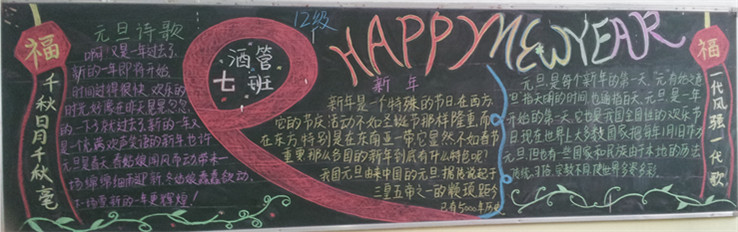 福
千秋日月千秋毫
元旦诗歌
啊!又是一年过去了,
新的一年即将开始,
时间过得很快,欢乐的
时光,好像在昨天是忽忽
的一下了就过去了,新的一年又
是一个充满欢声笑语的新年,也许
元旦是春天,春姑娘用风带动,带来一
场绵绵细雨迎新,冬姑娘轰轰欲动,
下一场至新的一年更辉煌!
酒管
七班
12级
HAPPY NEW YEAR
新年
新年是一个特殊的节日,在西方
它的节庆活动不如圣诞节那样隆重,而
在东方特别是在东南亚一带它显然不如春节
重要那么各国的新年到底有什么特色呢?
我国元旦由来中国的元旦,据传说起于
三皇五帝之一的颛顼,距今
已有5000年历史
元旦,是每个新年的第一天,元有始之意
旦指天明的时间,也通指白天,元旦,是一年
开始的第一天,它也是我国全国性的欢乐节
日,现在世界上大多数国家把每年1月1日作为
元旦,但也有一些国家和民族由于本地的历法
传统、习俗、宗教不同,使世界多姿多彩.
福
一代风强一代歌